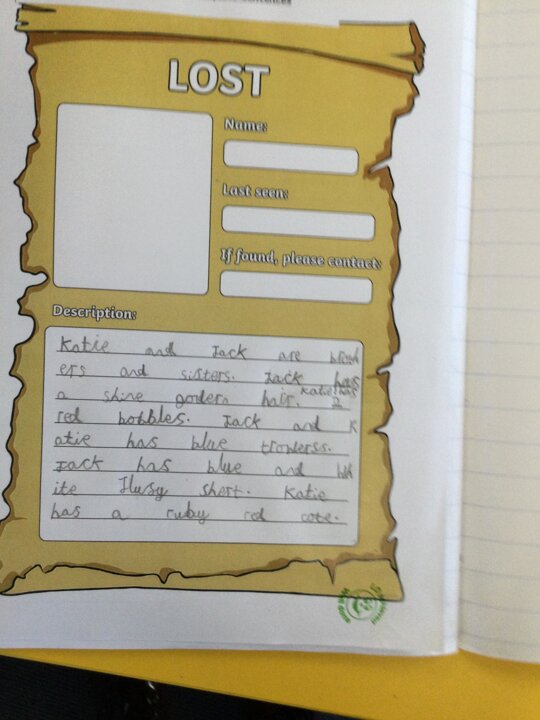 LOST
Name:
Last seen:
If found, please contact:
Description:
Katie and Jack are
ers and sisters. Jack has
a shine golden hair. Katie has 2
red bobbles. Jack and K
atie has blue trowerss.
Jack has blue and wh
ite short. Katie
has a ruby red cote.